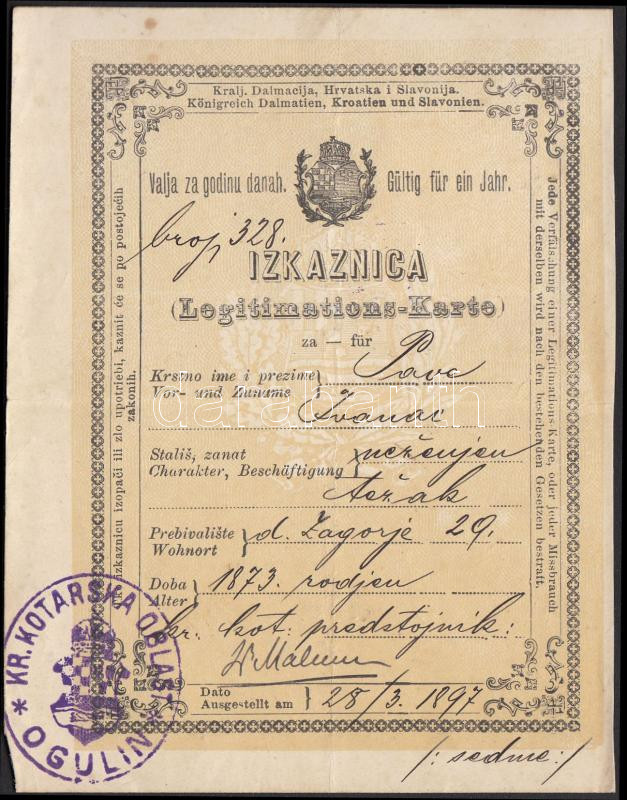 Kralj. Dalmacija, Hrvatska i Slavonija.
Königreich Dalmatien, Kroatien und Slavonien.
Valja za godinu danah. Gültig für ein Jahr.
broj 328.
IZKAZNICA
(Legitimations-Karte)
za — für
Krstno ime i prezime } Pave
Vor- und Zuname } Ivanac
Stališ, zanat } neženjen
Charakter, Beschäftigung } težak
Prebivalište } d. Zagorje 29.
Wohnort
Doba } 1873. rodjen
Alter
kr. kot. predstojnik:
Dato } 28/3. 1897
Ausgestellt am
/: sedme :/
izkaznicu izopači ili zlo upotriebi, kaznit će se po postojećih
zakonih.
Jede Verfälschung einer Legitimations-Karte, oder jeder Missbrauch
mit derselben wird nach den bestehenden Gesetzen bestraft.
* KR. KOTARSKA OBLAST *
OGULIN
darabanth